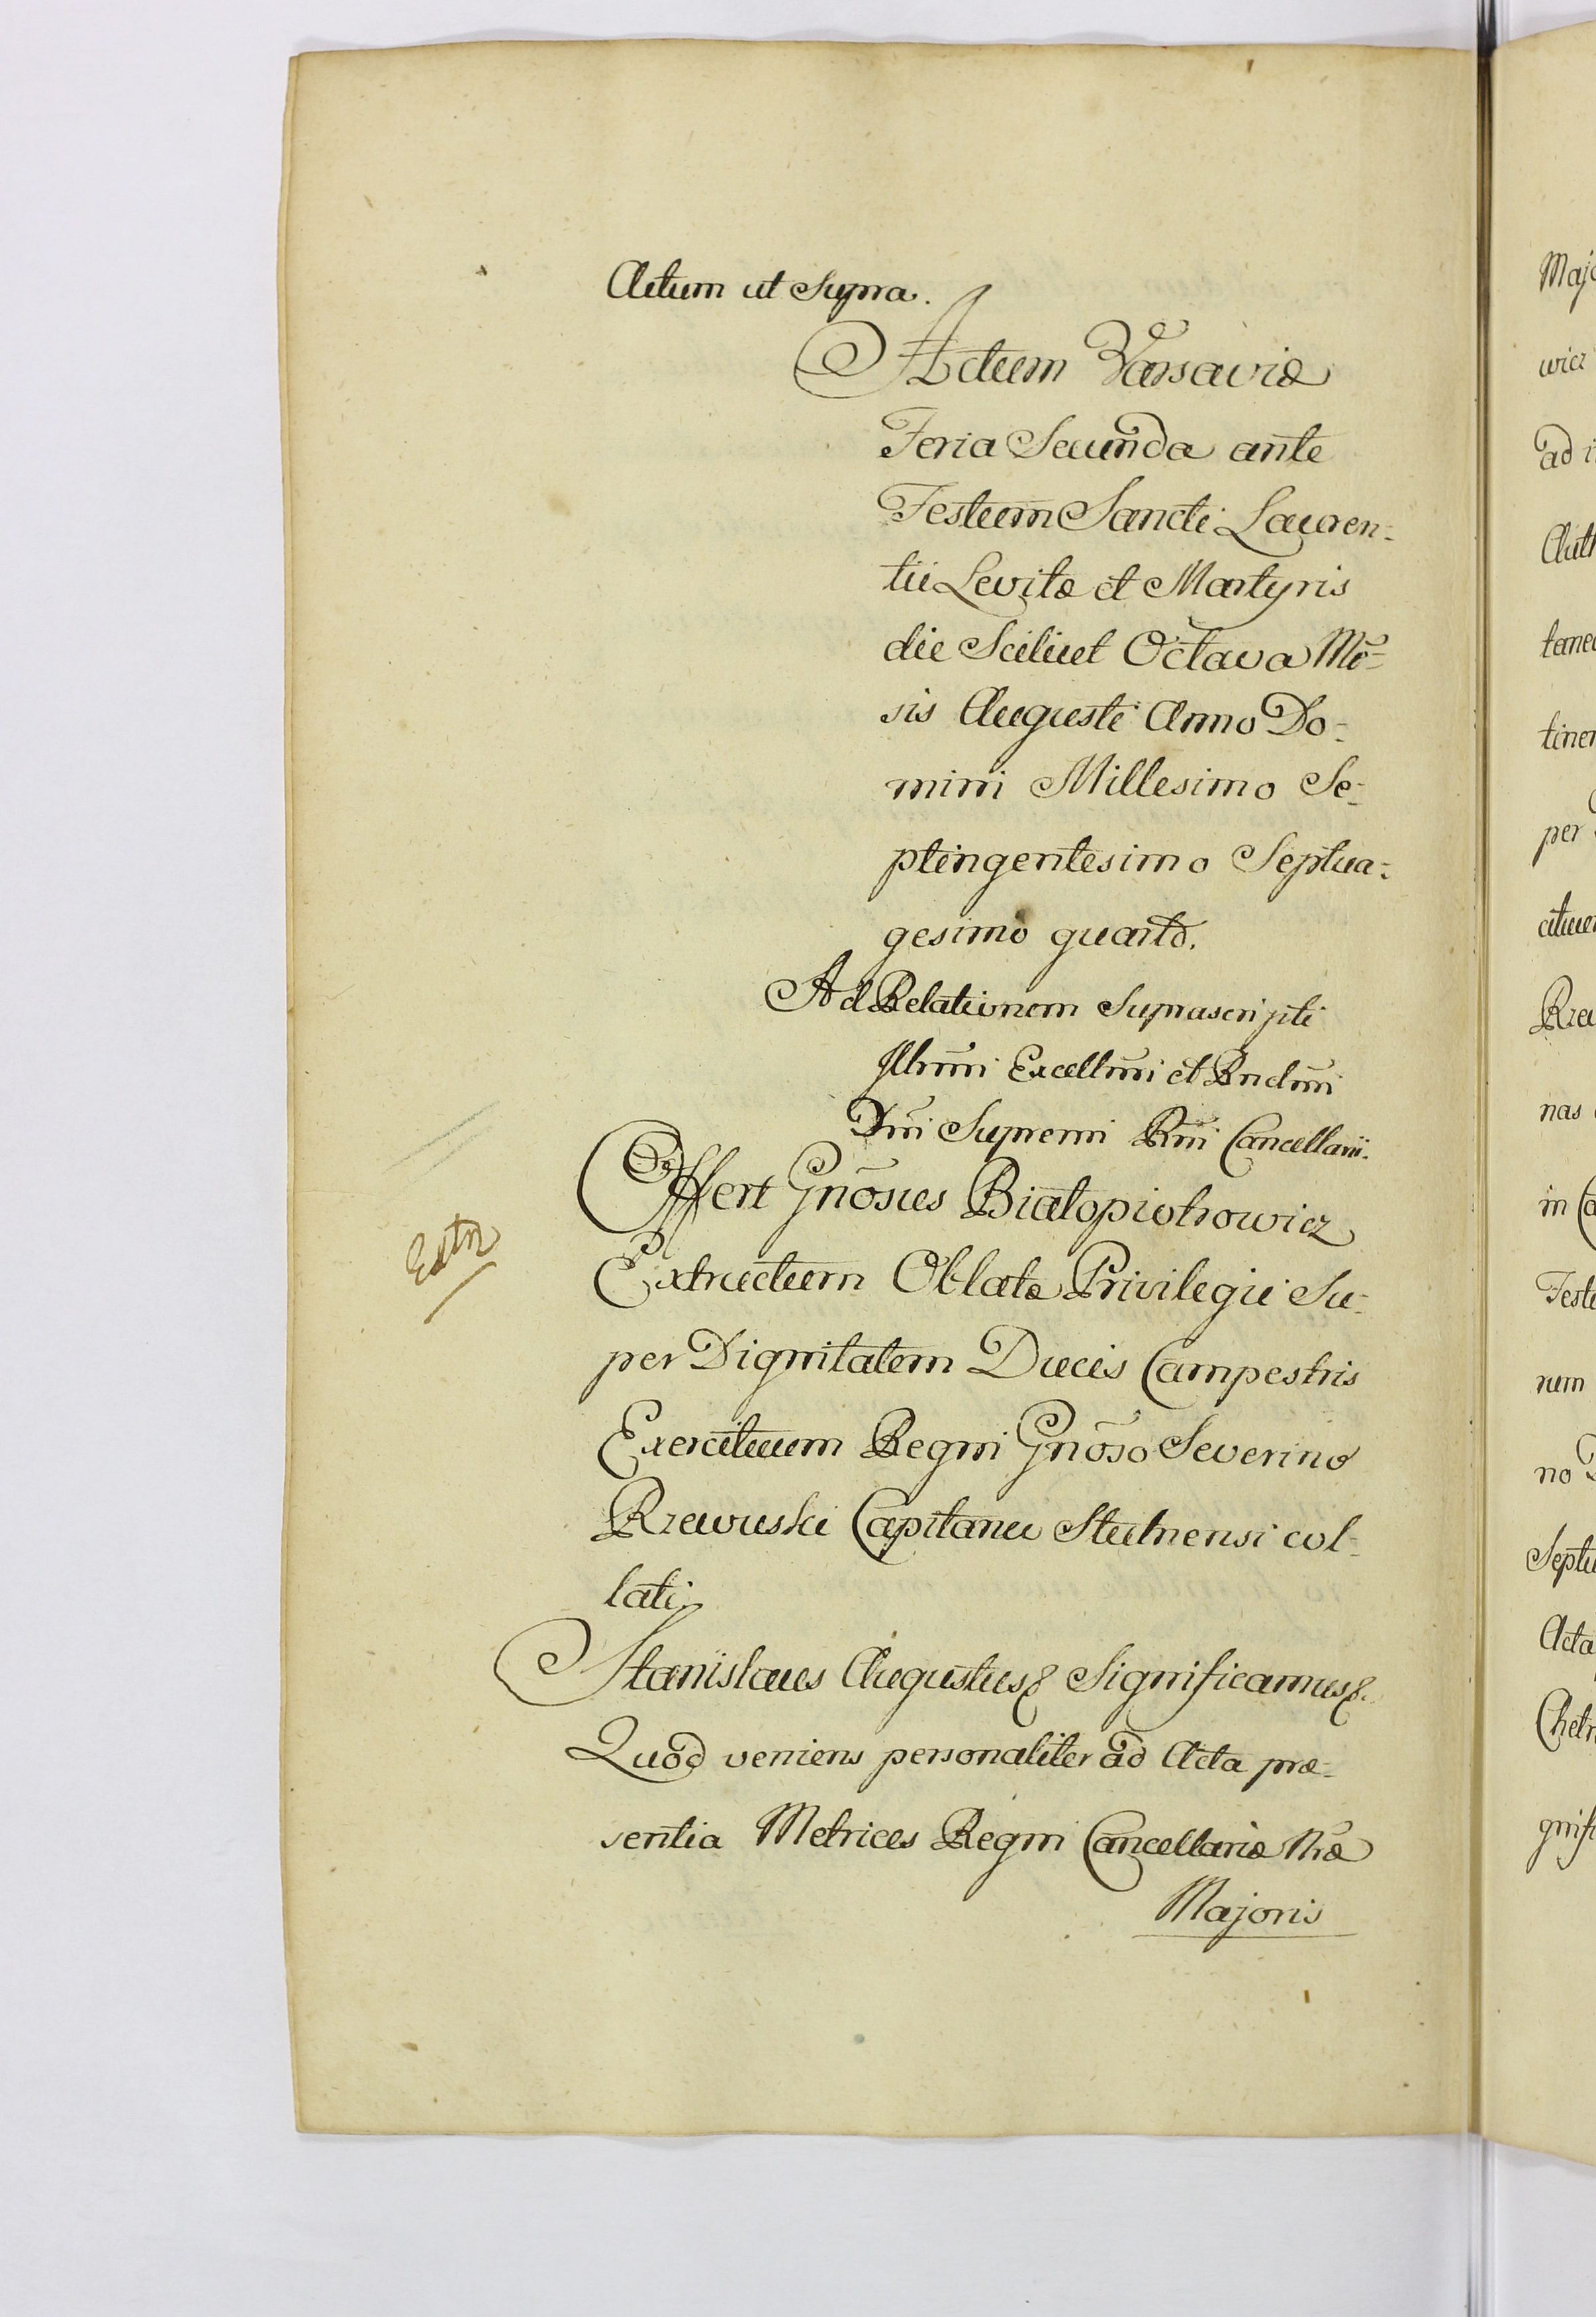 Actum ut Supra.
Actum Varsaviæ
Feria Secunda ante
Festum Sancti Lauren-
tii Levitæ et Martyris
die Scilicet Octava Mē-
sis Augusti Anno Do-
mini Millesimo Se-
ptingentesimo Septua-
gesimo quarto.
Ad Relationem Suprascripti
Illrmi Excellmi et Rndmi
Dni Supremi Rni Cancellarii.
Offert Gnosus Białopiotrowicz
Extr
Extractum Oblatæ Privilegii Su-
per Dignitatem Ducis Campestris
Exercituum Regni Gnoso Severino
Rzewuski Capitaneo Stulnensi col-
lati.
Stanislaus Augustus &. Significamus &.
Quod veniens personaliter ad Acta præ-
sentia Metrices Regni Cancellariæ Nræ
Majoris
wicz
ad
per
nas
in
Acta